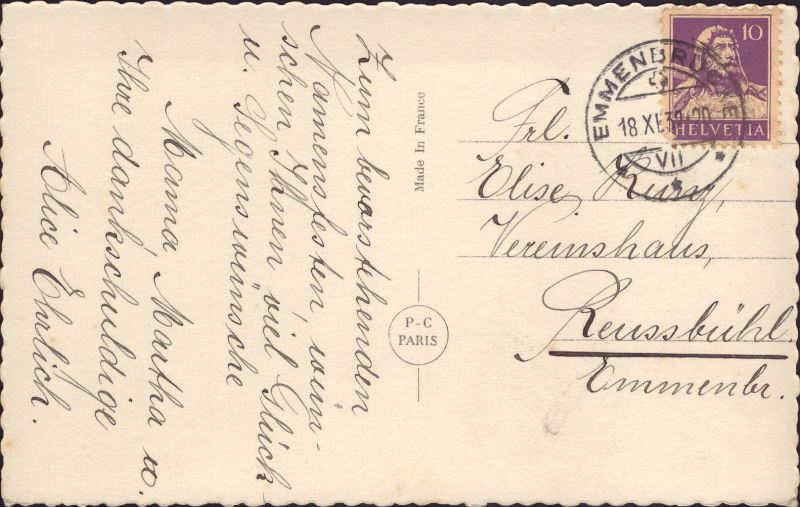 Zum bevorstehenden
Namensfesten, wün-
schen Ihnen viel Glück-
u. Segenswünsche
Mama, Martha u.
Ihre dankschuldige
Alice Ehrlich.
Made In France
P-C
PARIS
10
HELVETIA
EMMENBRÜCKE
18 XI
VII
Frl.
Elise Kunz,
Vereinshaus,
Reussbühl.
Emmenbr.